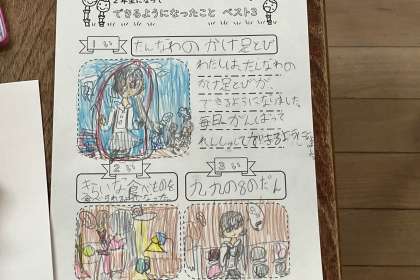 2年生になって
できるようになったこと ベスト3
1い
たんなわの かけ足とび
わたしは、たんなわの
かけ足とびが
できるようになりました。
毎日がんばって
れんしゅうして
2い
きらいな食べものを
3い
九九の8のだん